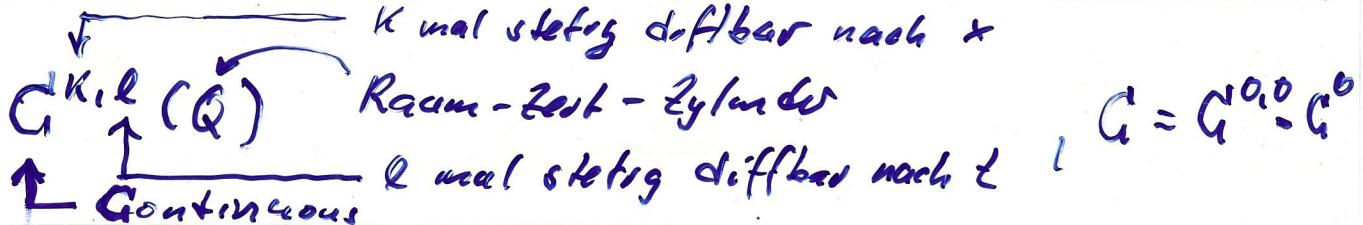 K mal stetig diffbar nach x
C^{K,l} (Q) Raum-Zeit-Zylinder , C = C^{0,0} = C^0
l mal stetig diffbar nach t
Continuous